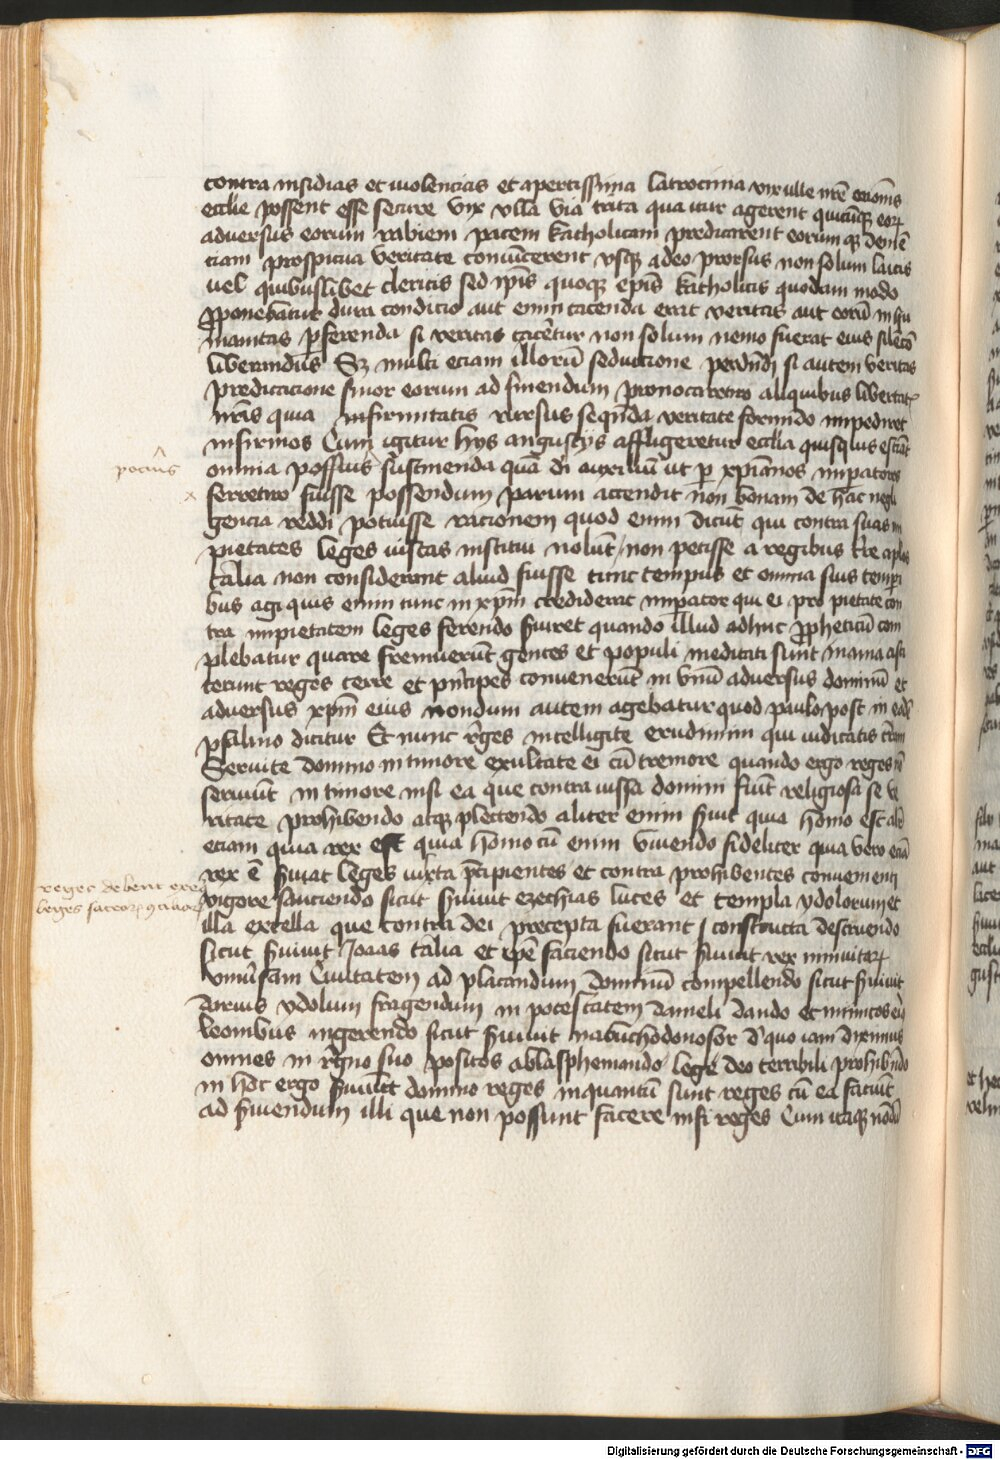 contra insidias et violencias et apertissima latrocinia vix ulle nr̄e
ecclie possent esse secure vix vlla via trita qua itur agerent quicūqꝫ eoꝝ
adversus eorum rabiem pacem katholicam predicarent eorumqꝫ demē
ciam prospicua veritate convincerent vsqꝫ adeo prorsus non solum laicis
vel quibuslibet clericis sed ip̄is quoqꝫ ep̄is katholicis quodam modo
ꝓponebātur dura condicio aut enim tacenda erat veritas aut eorū in hu
manitas ꝑferenda si veritas tacētur non solum nemo fuerat eius silēcō
liberandus Sꝫ multi eciam illorū seductione perdēdi si autem veritas
predicacione furor eorum ad seuiendum prouocaretur aliquibus libertatꝫ
nr̄is quia infirmitatis rursus seqn̄da veritate formido impediret
infirmos Cum igitur hijs angustijs affligeretur ecclia quisquis estīat
pocius
omnia possius sustinenda quā dī auxiliū ut ꝑ xp̄ianos imꝑatores
ferretur fuisse possendum parum attendit non bonam de hac negli
gencia reddi potuisse racionem quod enim dicūt qui contra suas im
pietates leges iustas institui nolūt / non petisse a regibus tr̄e aplōs
talia non considerant aliud fuisse tunc tempus et omnia suis tempori
bus agi quis enim tunc in xp̄m crediderat imꝑator qui ei pro pietate con
tra impietatem leges ferendo s̄uiret quando illud adhuc ꝓpheticū com
plebatur quare fremuerūt gentes et populi meditati sunt inania asti
terunt reges terre et pn̄cipes convenerūt in vnū adversus dominū et
adversus xp̄m eius nondum autem agebatur quod paulo post in eodē
psalmo dicitur Et nunc r̄ges intelligite erudimini qui iudicatis trām
Servite domino in timore exultate ei cū tremore quando ergo reges dn̄o
serviūt in timore nisi ea que contra iussa domini fiūt religiosa se ve
ritate prohibendo atqꝫ plectendo aliter enim s̄uit quia homo est alit̄
eciam quia rex est quia homo cū enim vivendo fideliter quia vero eciā
rex ē s̄uiat leges iuxta p̄cipientes et contra prohibentes convenienti
reges debent
leges
vigore sanciendo sicut s̄uiuit ezechias luces et templa ydolorum et
illa excella que contra dei precepta fuerant / constructa destruendo
sicut s̄uiuit Joaas talia et ip̄e faciendo sicut s̄uiuit rex ninivitaꝝ
vniūsam Civitatem ad placandum dominū compellendo sicut s̄uiuit
darius ydolum frāgendum in potestatem danieli dando et inimicos eiꝰ
leonibus ingerendo sicut s̄uiuit nabuchodonosor d' quo iam diximus
omnes in r̄gno suo positos a blasphemando lege deo terribili prohibēdo
in hoc ergo s̄uiūt domino reges inquantū sunt reges cū ea faciūt
ad s̄uiendum illi que non possunt facere nisi reges Cum itaqꝫ nōdū
Digitalisierung gefördert durch die Deutsche Forschungsgemeinschaft - DFG